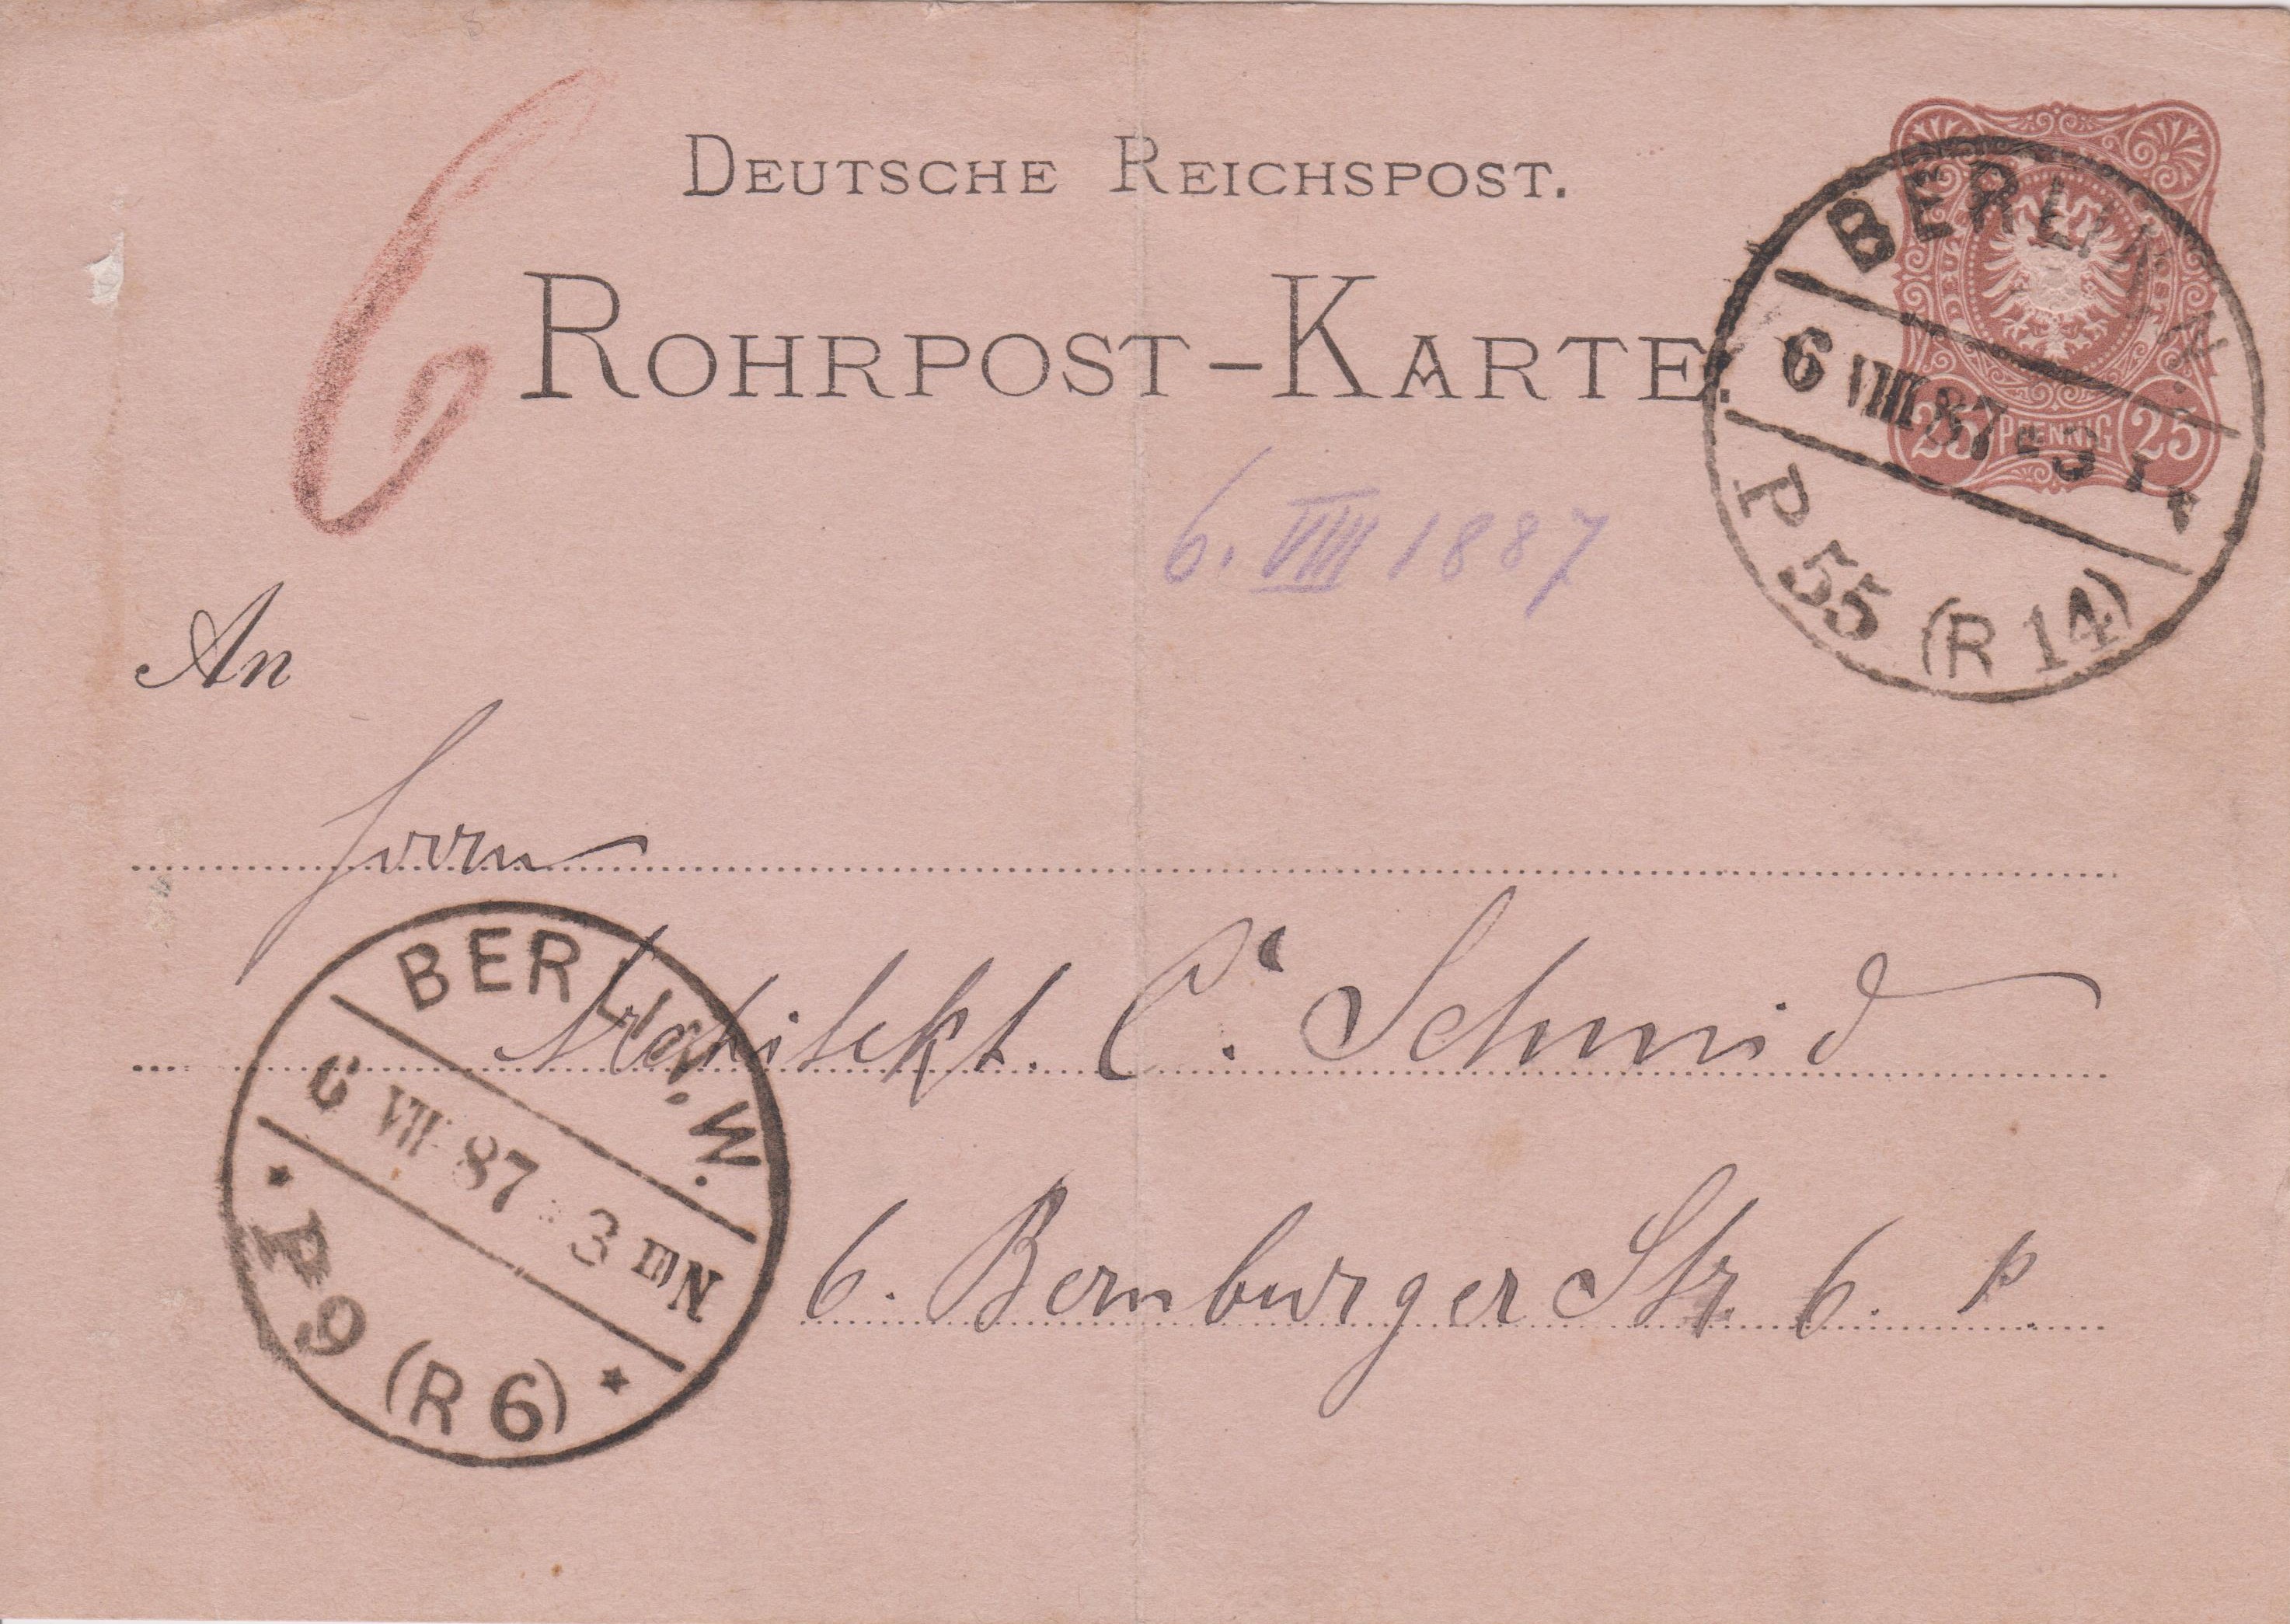 DEUTSCHE REICHSPOST.
ROHRPOST-KARTE.
6
BERLIN, N.
6 VIII 87
P 55 (R 14)
DEUTSCHE REICHSPOST
25 PFENNIG 25
6. VIII 1887
An
Herrn
Architekt. C. Schmid
6. Bernburger Str. 6. p.
BERLIN, W.
6 VIII 87 3 III N
* P 9 (R 6) *